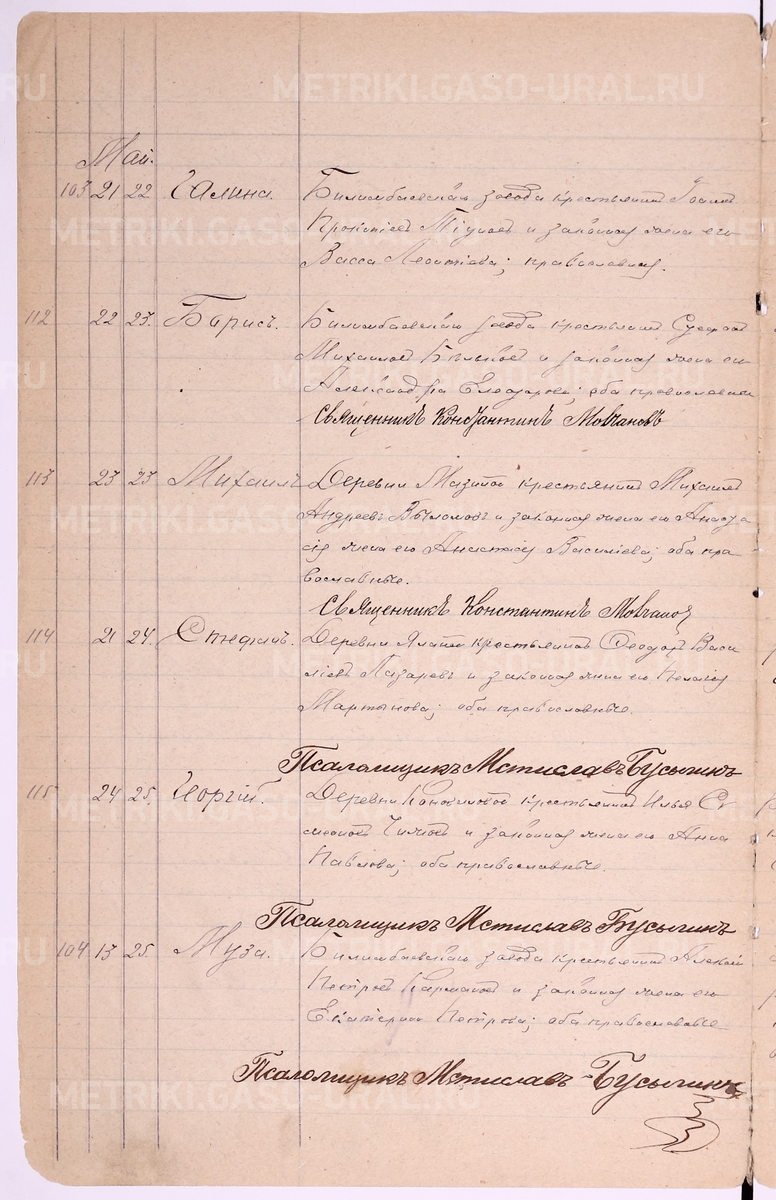 Май.
103 21 22 Галина. Билимбаевскаго завода крестьянин Иоанн
и законная жена его
Васса Леонтиева; православная.
112 22 23. Борисъ. Билимбаевскаго завода крестьянин
Михаилов и законная жена его
Александра Елеазарова; оба православные
Священникъ Константинъ Мовчановъ
113 23 23 Михаилъ Деревни крестьянинъ Михаилъ
Андреевъ и законная жена его Анаста
сія жена его Анастасія Василіева; оба пра-
вославные.
Священникъ Константинъ Мовчанов
114 21 24. Стефанъ. Деревни крестьянинъ Феодор Васи
ліевъ Лазаревъ и законная жена его Пелагия
Мартынова; оба православные.
Псаломщикъ Мстиславъ Бусыгинъ
115 24 25. Георгій. Деревни Коноваловой крестьянин Илья Си
меонов и законная жена его Анна
Павлова; оба православные.
Псаломщикъ Мстиславъ Бусыгинъ
104 13 25. Муза. Билимбаевскаго завода крестьянин Алексий
Петров и законная жена его
Екатерина Петрова; оба православные
Псаломщикъ Мстиславъ Бусыгинъ
METRIKI.GASO-URAL.RU